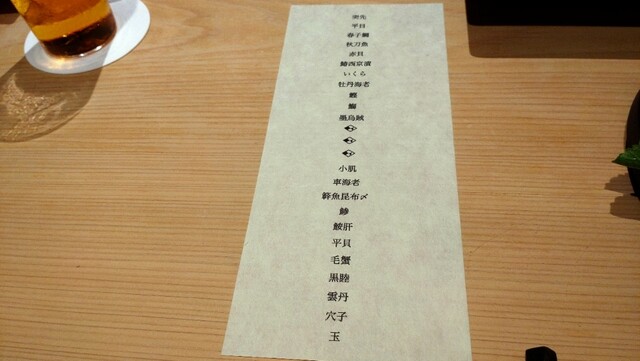 平目
春子鯛
秋刀魚
赤貝
鰆西京漬
いくら
牡丹海老
鰹
墨烏賊
小肌
車海老
昆布〆
鯵
鮟肝
平貝
毛蟹
黒睦
雲丹
穴子
玉